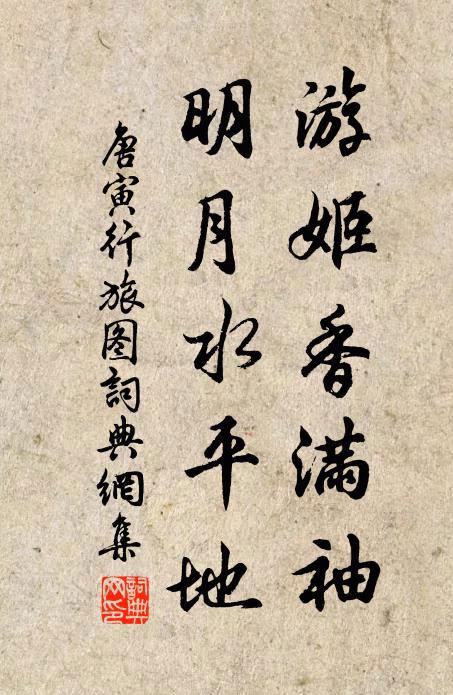 游姬香满袖
明月水平地
唐寅行旅图詞典網集
詞典网印